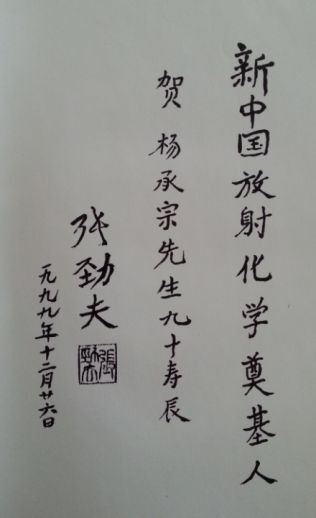 新中国放射化学奠基人
贺杨承宗先生九十寿辰
张劲夫
一九九九年十二月廿六日